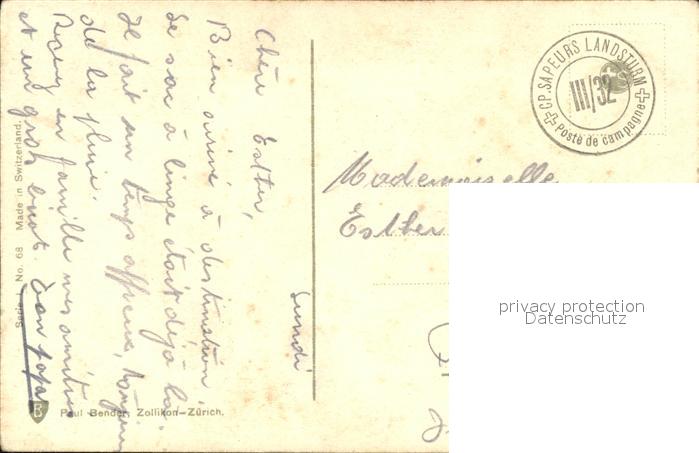 Lundi
Chère Esther,
Bien arrivé à destination,
le sac à linge était déjà là.
Il fait un temps affreux, toujours
de la pluie.
Reçois en famille mes amitiés
et un gros baiser. Ton papa
CP. SAPEURS LANDSTURM
III/32
Poste de campagne
Mademoiselle
Esther
Serie No. 68 Made in Switzerland.
B
Paul Bender, Zollikon-Zürich.
privacy protection
Datenschutz